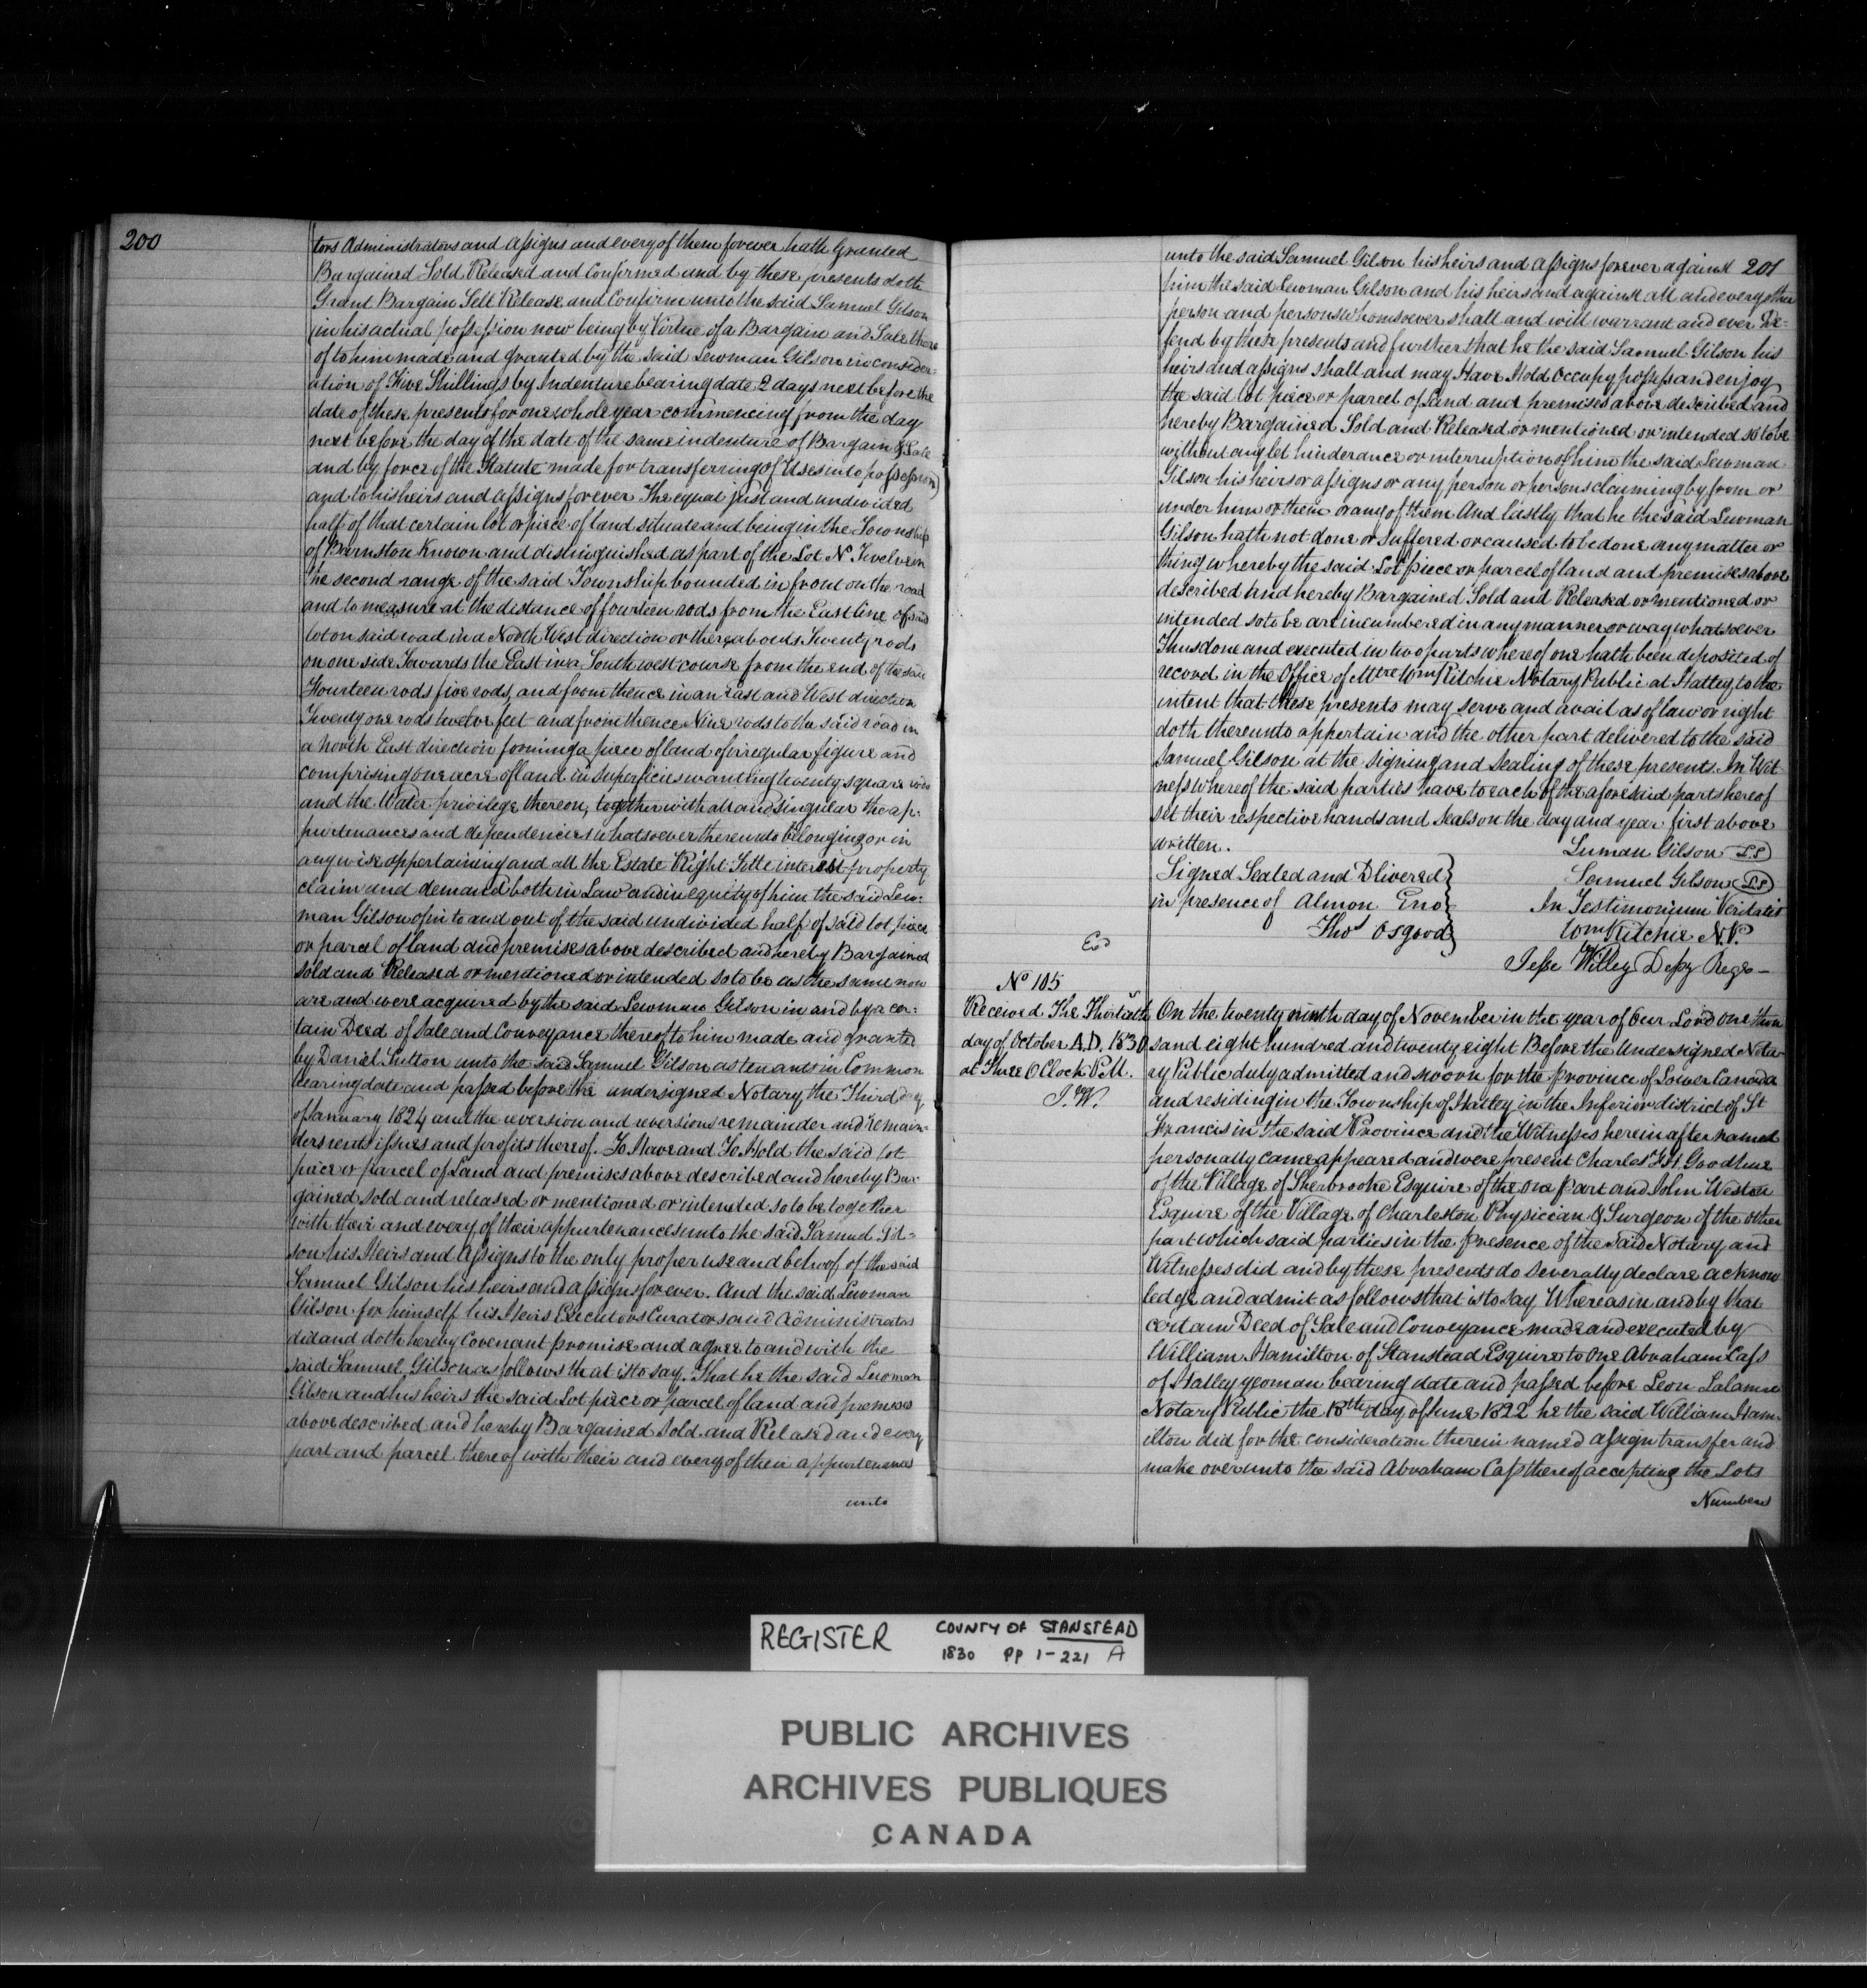 200
tors Administrators and Assigns and every of them forever hath Granted
Bargained Sold Released and Confirmed and by these presents doth
Grant Bargain Sell Release and Confirm unto the said Samuel Gilson
(in his actual possession now being by Virtue of a Bargain and Sale there
of to him made and granted by the said Lewman Gilson in consider=
ation of Five Shillings by Indenture bearing date 2 days next before the
date of these presents for one whole year commencing from the day
next before the day of the date of the same indenture of Bargain & Sale
and by force of the Statute made for transferring of Uses into possession)
and to his heirs and assigns forever The equal just and undivided
half of that certain lot or piece of land situate and being in the Township
of Barnston Known and distinguished as part of the Lot No Twelve in
the second range of the said Township bounded in front on the road
and to measure at the distance of fourteen rods from the East line of said
lot on said road in a North West direction or thereabouts Twenty rods
on one side Towards the East in a South west course from the end of the said
Fourteen rods five rods, and from thence in an East and West direction
Twenty one rods twelve feet and from thence Nine rods to the said road in
a North East direction forming a piece of land of irregular figure and
comprising one acre of land in Superficies wanting twenty square rods
and the Water privilege thereon, together with all and singular the ap-
purtenances and dependencies whatsoever thereunto belonging or in
anywise appertaining and all the Estate Right Title interest property
claim and demand both in Law and in equity of him the said Lew=
man Gilson of in to and out of the said undivided half of said lot piece
or parcel of land and premises above described and hereby Bargained
sold and Released or mentioned or intended so to be as the same now
are and were acquired by the said Lewman Gilson in and by a cer=
tain Deed of Sale and Conveyance thereof to him made and granted
by Daniel Sutton unto the said Samuel Gilson as tenants in Common
bearing date and passed before the undersigned Notary the Third day
of January 1824 and the reversion and reversions remainder and remain=
ders rents issues and profits thereof. To Have and To Hold the said lot
piece or parcel of Land and premises above described and hereby Bar-
gained sold and released or mentioned or intended so to be together
with their and every of their appurtenances unto the said Samuel Gil=
son his Heirs and Assigns to the only proper use and behoof of the said
Samuel Gilson his heirs and assigns forever. And the said Lewman
Gilson for himself his Heirs Executors Curators and Administrators
did and doth hereby Covenant promise and agree to and with the
said Samuel Gilson as follows that is to say. That he the said Lewman
Gilson and his heirs the said Lot piece or parcel of land and premises
above described and hereby Bargained Sold and Released and every
part and parcel thereof with their and every of their appurtenances
unto
unto the said Samuel Gilson his heirs and assigns forever against 201
him the said Lewman Gilson and his heirs and against all and every other
person and persons whomsoever shall and will warrant and ever De=
fend by these presents and further that he the said Samuel Gilson his
heirs and assigns shall and may Have Hold Occupy possess and enjoy
the said lot piece or parcel of Land and premises above described and
hereby Bargained Sold and Released or mentioned or intended so to be
without any let hinderance or interruption of him the said Lewman
Gilson his heirs or assigns or any person or persons claiming by from or
under him or them or any of them And lastly that he the said Lewman
Gilson hath not done or suffered or caused to be done any matter or
thing whereby the said Lot piece or parcel of land and premises above
described and hereby Bargained Sold and Released or mentioned or
intended so to be are incumbered in any manner or way whatsoever
Thus done and executed in two parts whereof one hath been deposited of
record in the Office of Mtre Wm Ritchie Notary Public at Hatley to the
intent that these presents may serve and avail as of law or right
doth thereunto appertain and the other part delivered to the said
Samuel Gilson at the signing and Sealing of these presents. In Wit
ness whereof the said parties have to each of the aforesaid parts hereof
set their respective hands and Seals on the day and year first above
written. Luman Gilson L.S
Signed Sealed and Dlivered Samuel Gilson L.S
in presence of Almon Eno In Testimonium Veritatis
Thos Osgood Wm Ritchie N.P.
Exd
Jesse Willey Depy Regr
No 105
Received The Thirtieth
day of October A.D. 1830
at Three O Clock P.M.
J.W.
On the twenty ninth day of November in the year of Our Lord one thou
sand eight hundred and twenty eight Before the Undersigned Nota
ry Public duly admitted and sworn for the Province of Lower Canada
and residing in the Township of Hatley in the Inferior district of St
Francis in the said Province and the Witnesses herein after named
personally came appeared and were present Charles F. H. Goodhue
of the Village of Sherbrooke Esquire of the one Part and John Weston
Esquire of the Village of Charleston Physician & Surgeon of the other
part which said parties in the Presence of the Said Notary and
Witnesses did and by these presents do severally declare acknow
ledge and admit as follows that is to say Whereas in and by that
certain Deed of Sale and Conveyance made and executed by
William Hamilton of Stanstead Esquire to One Abraham Cass
of Hatley yeoman bearing date and passed before Leon Lalanne
Notary Public the 18th day of June 1822 he the said William Ham-
ilton did for the consideration therein named assign transfer and
make over unto the said Abraham Cass thereof accepting the Lots
Numbers
REGISTER COUNTY OF STANSTEAD
1830 PP 1-221 A
PUBLIC ARCHIVES
ARCHIVES PUBLIQUES
CANADA